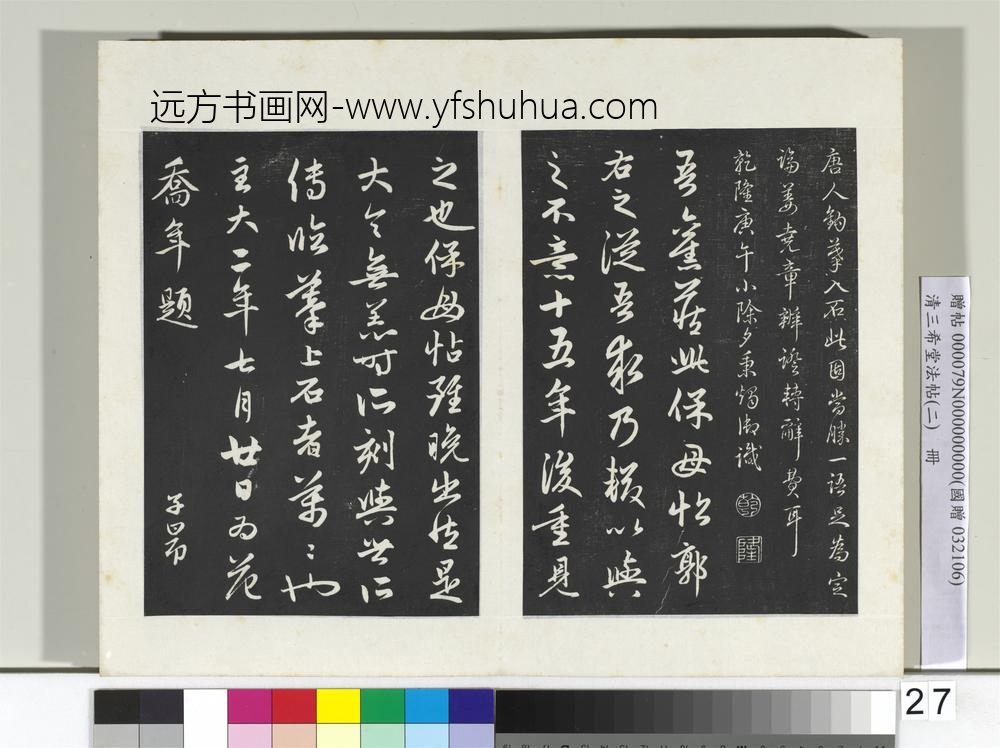 远方书画网-www.yfshuhua.com
唐人鈎摹入石此固當勝一語足為定
論姜堯章辨證轉辭費耳
乾隆庚午小除夕秉燭御識
乾
隆
吾舊藏此保母帖郭
右之從吾求乃輟以與
之不意十五年後重見
之也保母帖雖晚出然是
大令無恙時所刻與世所
傳臨摹上石者萬〻也
至大二年七月廿日為范
喬年題
子昂
贈帖 000079N000000000(國贈 032106)
清三希堂法帖(二) 冊
27